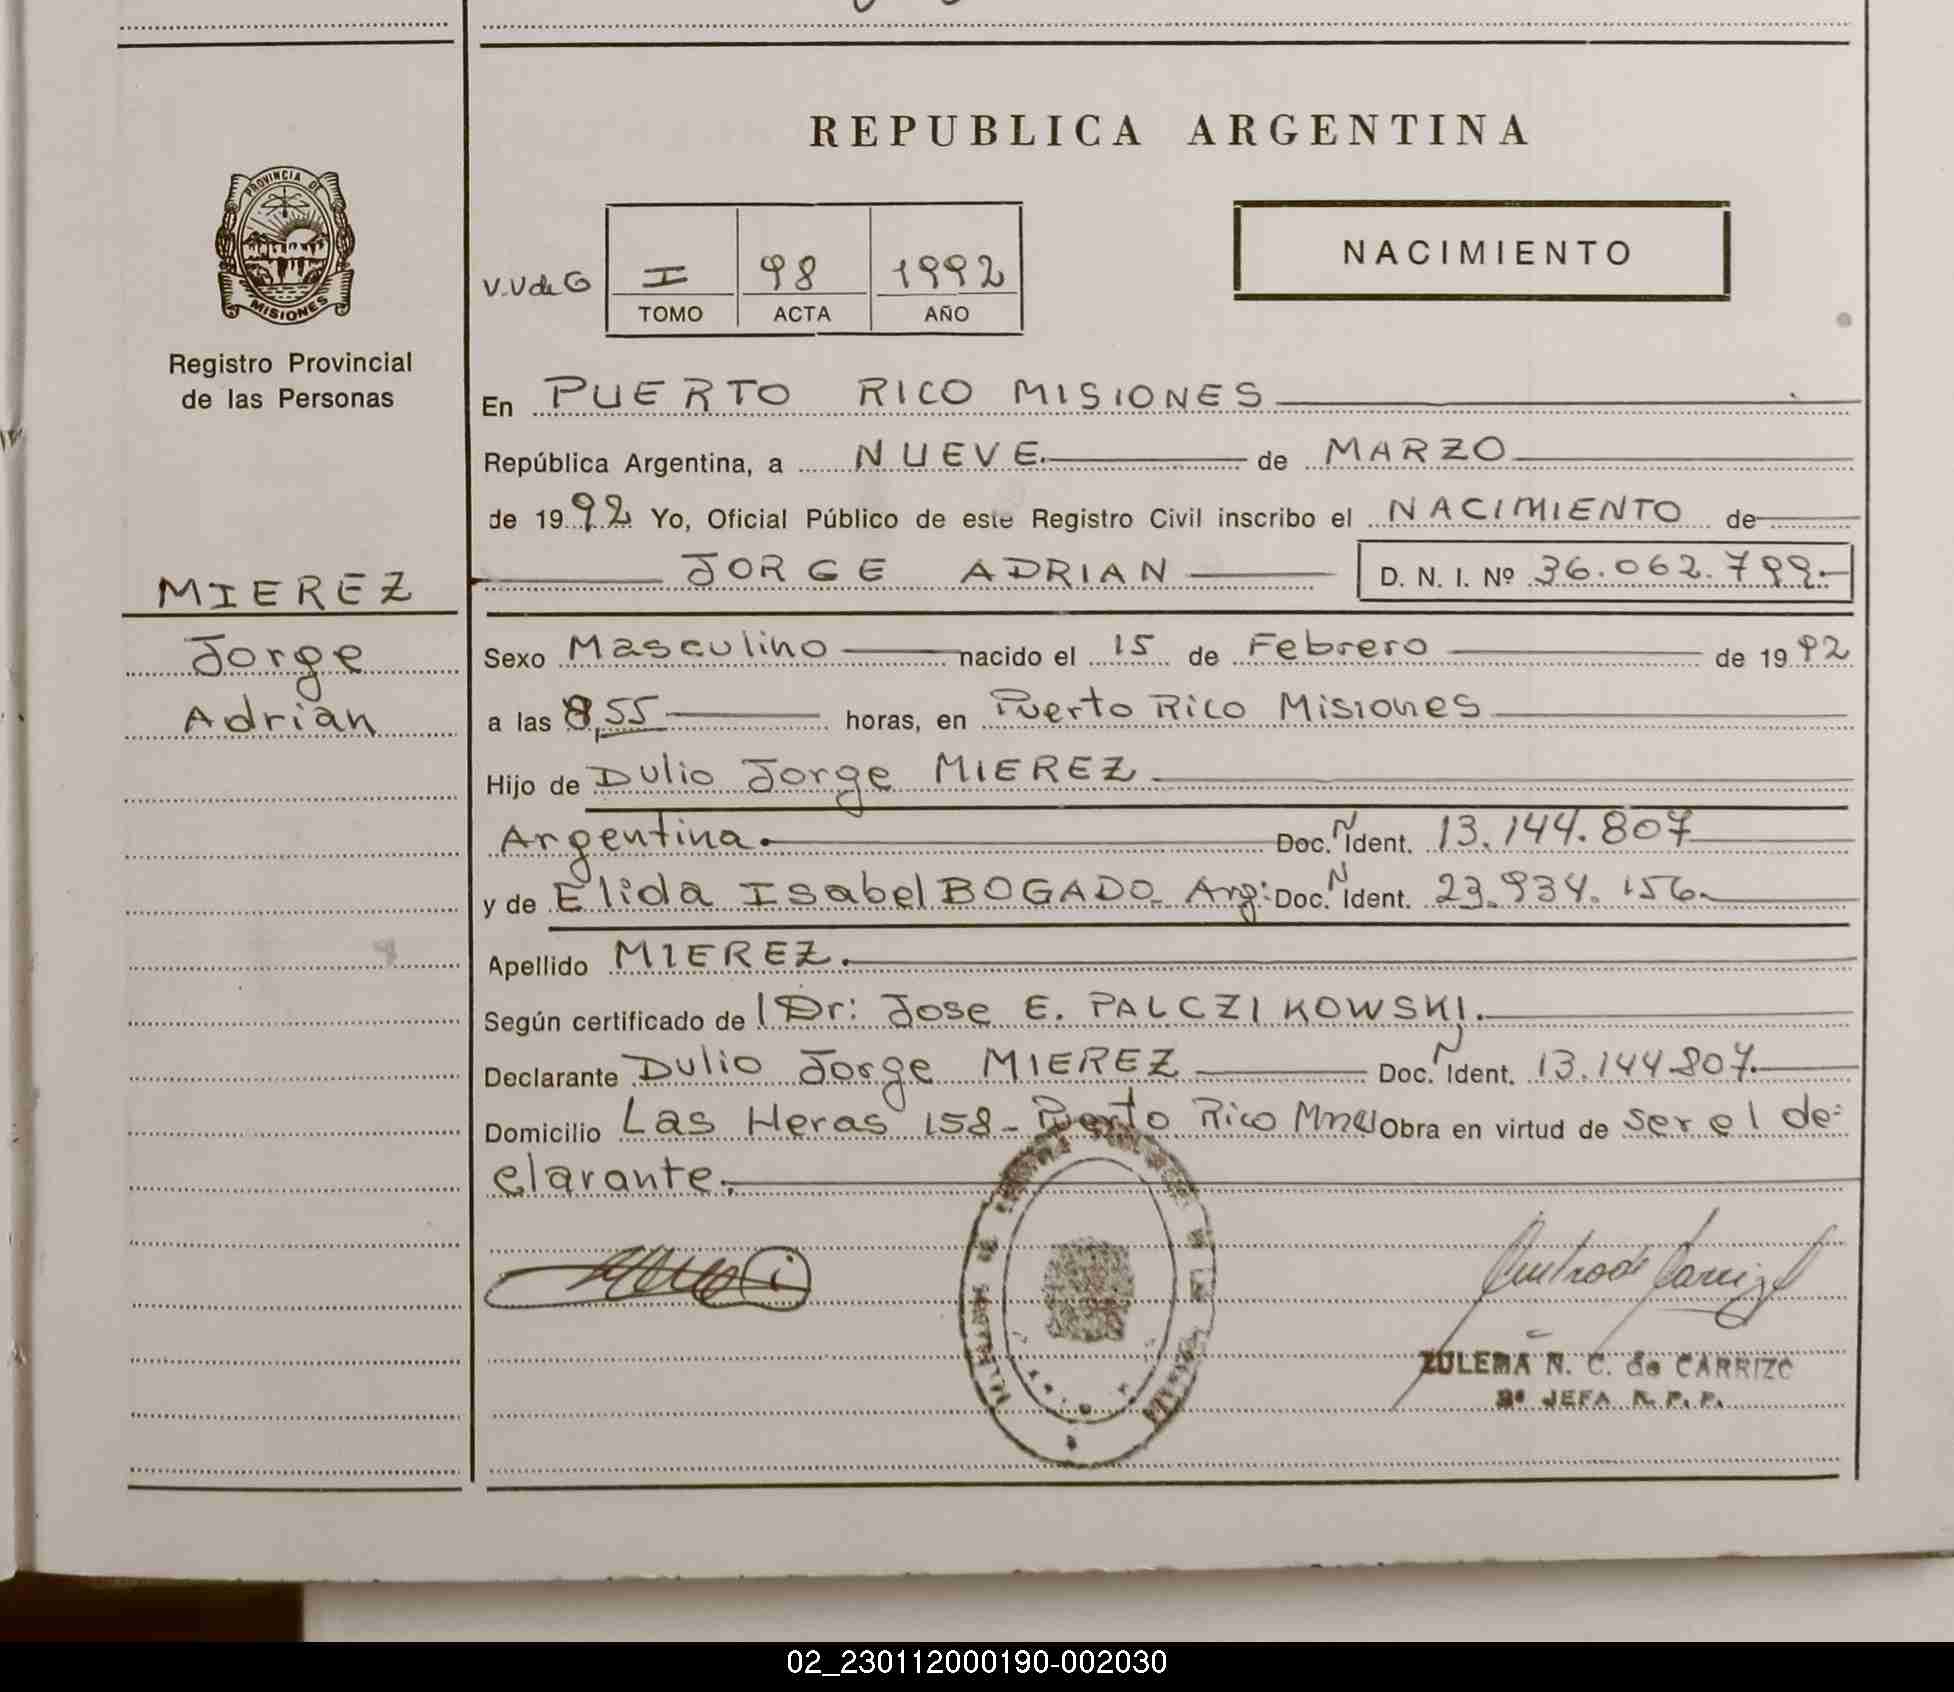 REPUBLICA ARGENTINA
PROVINCIA DE
MISIONES
Registro Provincial
de las Personas
V.V de G
I 98 1992
TOMO ACTA AÑO
NACIMIENTO
En PUERTO RICO MISIONES
República Argentina, a NUEVE de MARZO
de 1992 Yo, Oficial Público de este Registro Civil inscribo el NACIMIENTO de
JORGE ADRIAN D. N. I. Nº 36.062.799.
MIEREZ
Jorge
Adrian
Sexo Masculino nacido el 15 de Febrero de 1992
a las 8,55 horas, en Puerto Rico Misiones
Hijo de Dulio Jorge MIEREZ
Argentina. Doc. N Ident. 13.144.807
y de Elida Isabel BOGADO Arg: Doc. N Ident. 23.934.156.
Apellido MIEREZ.
Según certificado de Dr: Jose E. PALCZIKOWSKI.
Declarante Dulio Jorge MIEREZ Doc. N Ident. 13.144.807.
Domicilio Las Heras 158- Puerto Rico Mnes Obra en virtud de ser el de-
clarante.
ZULEMA N. C. de CARRIZO
JEFA R. P. P.
02_230112000190-002030